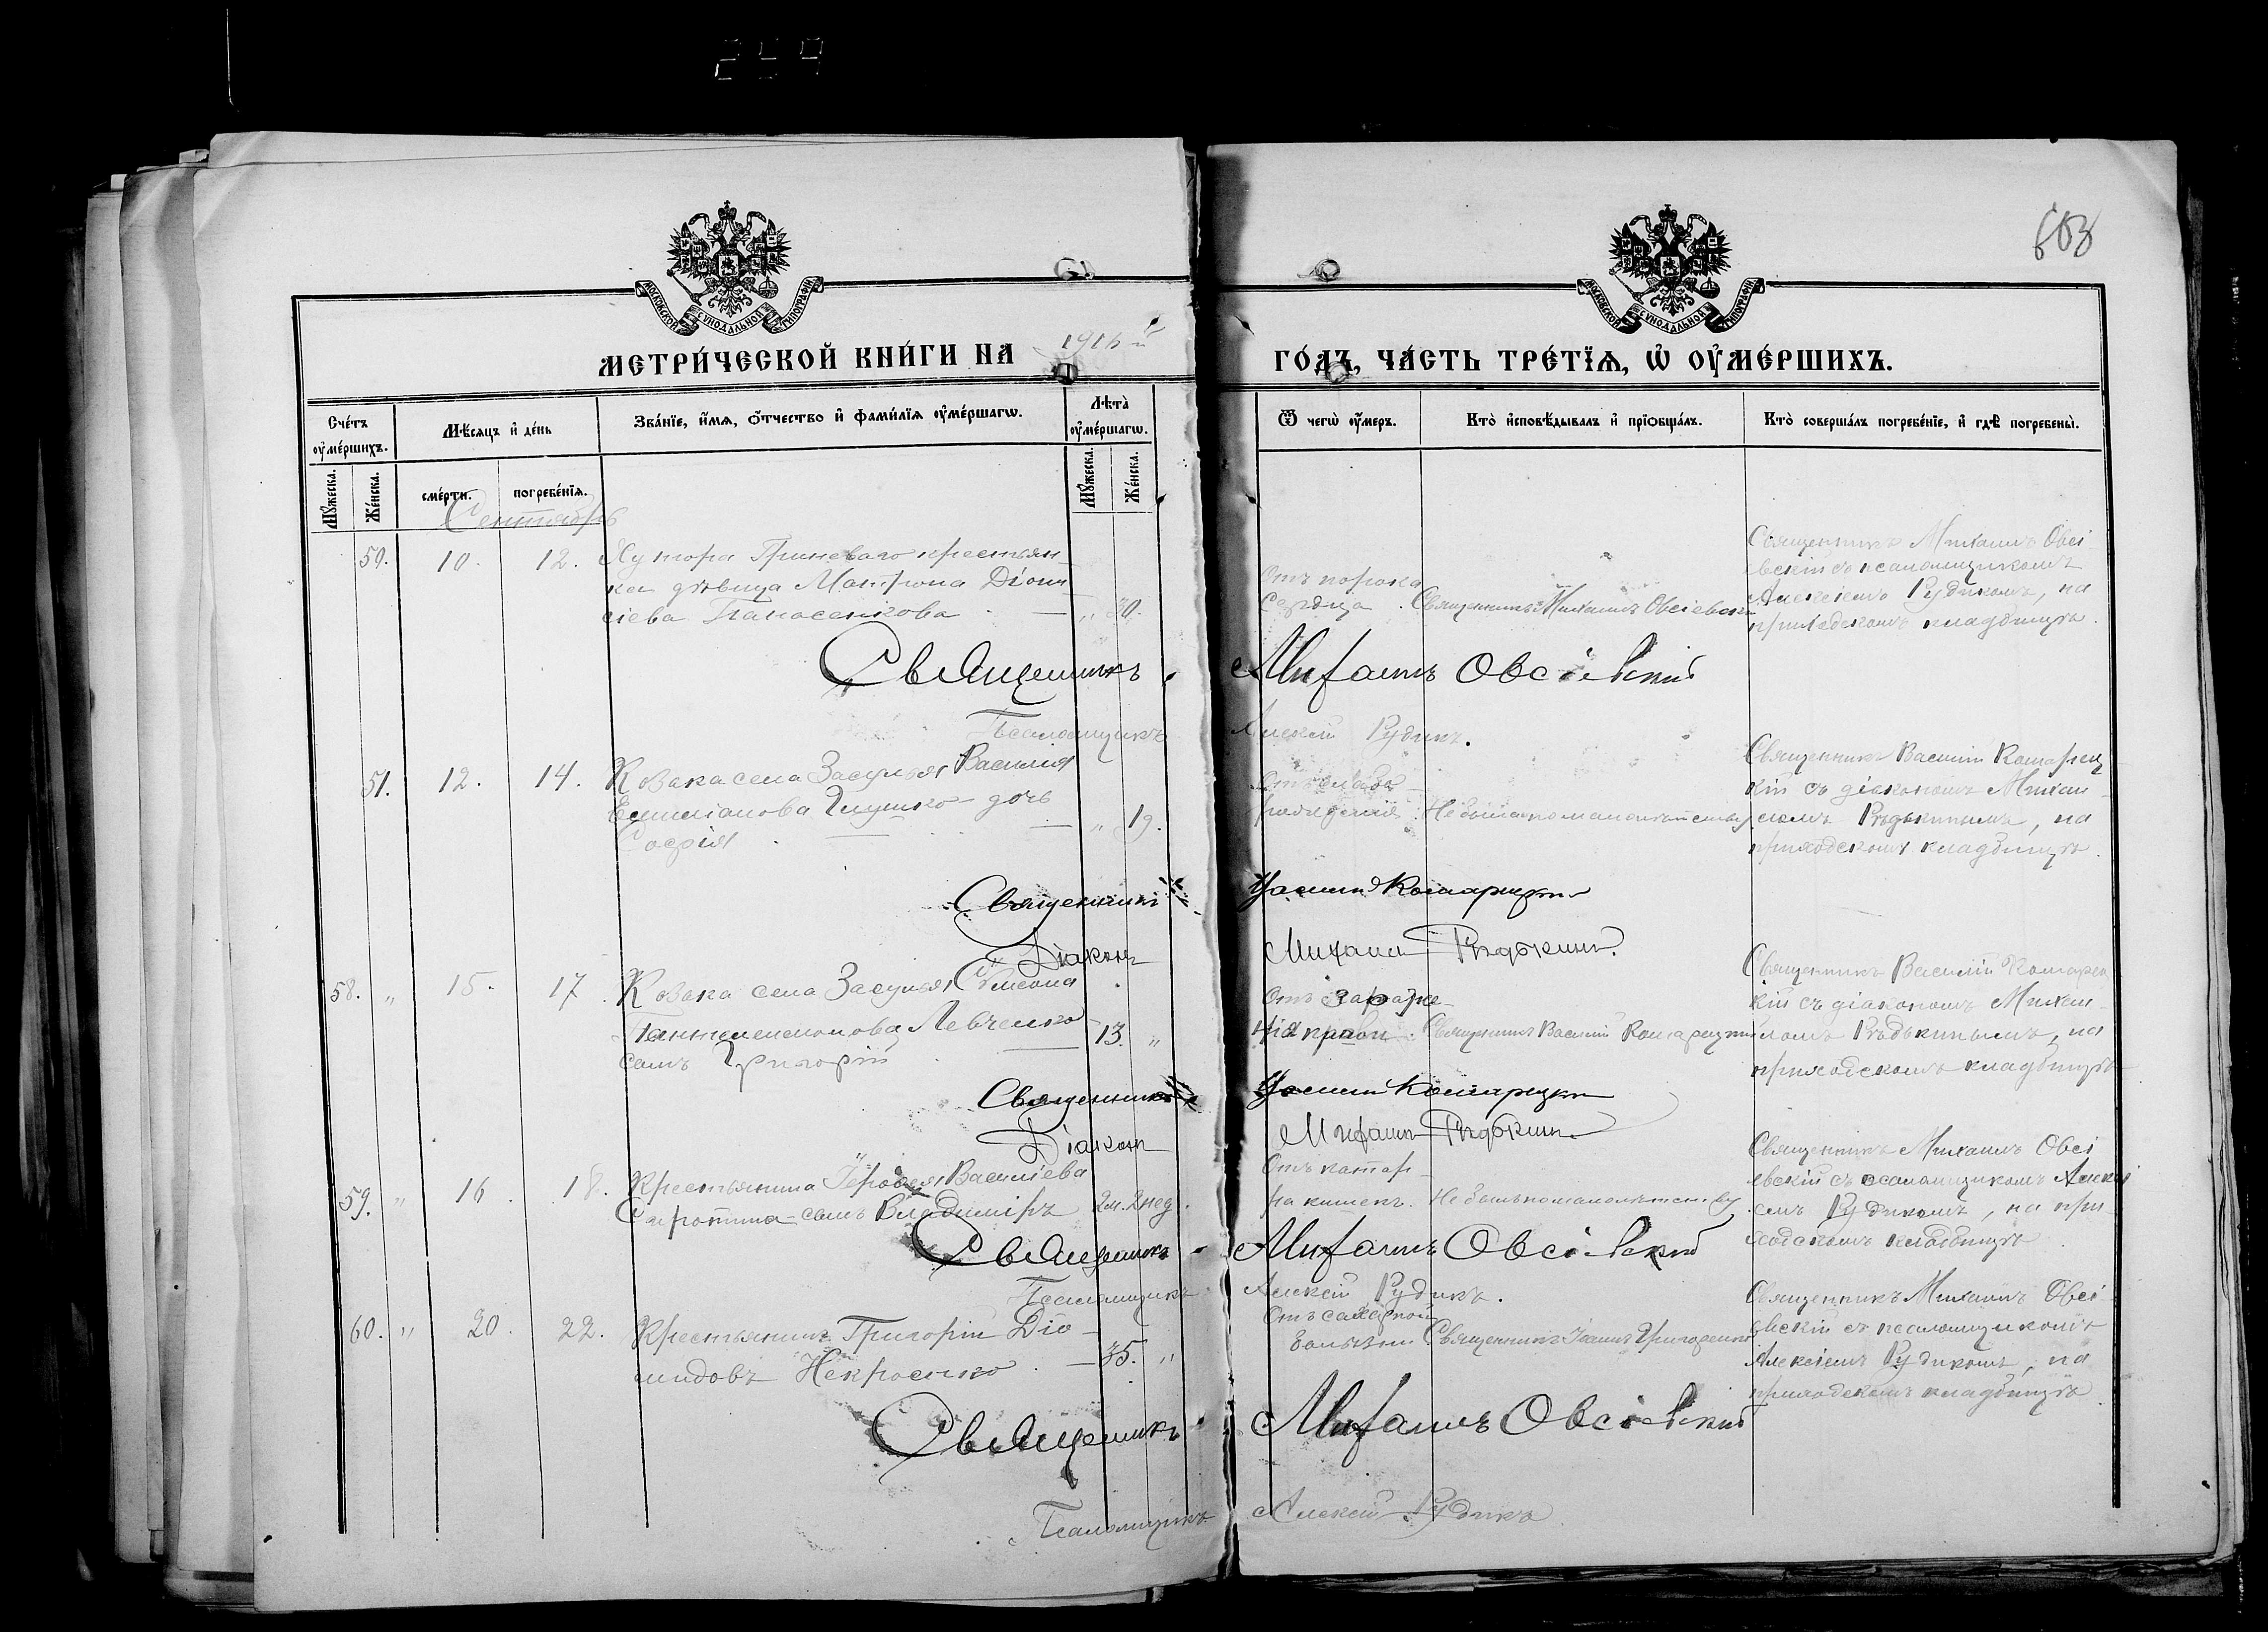 603
МОСКОВСКОЙ СѴНОДАЛЬНОЙ ТИПОГРАФІИ
МОСКОВСКОЙ СѴНОДАЛЬНОЙ ТИПОГРАФІИ
МЕТРИ́ЧЕСКОЙ КНИ́ГИ НА 1916й ГО́ДЪ, ЧА́СТЬ ТРЕ́ТЇѦ, Ѡ҆ ОУ҆МЕ́РШИХЪ.
Сче́тъ оу҆ме́ршихъ.
Мѣ́сяцъ и҆ де́нь
Зва́нїе, и҆́мѧ, ѻ҆́тчество и҆ фами́лїѧ оу҆ме́ршагѡ.
Лѣта̀ оу҆ме́ршагѡ.
Ѿ чегѡ̀ оу҆́меръ.
Кто̀ и҆сповѣ́дывалъ и҆ прїѻбща́лъ.
Кто̀ соверша́лъ погребе́нїе, и҆ гдѣ̀ погребены̀.
Мꙋ́жеска.
Же́нска.
сме́рти.
погребе́нїѧ.
Мꙋ́жеска.
Же́нска.
Сентябрь
50. 10. 12. Хутора Гриневаго крестьян-
ка дѣвица Матрона Діони
сіева Панасенкова — „ 30.
Отъ порока
сердца. Священникъ Михаилъ Овсіевскій
Священникъ Михаилъ Овсі
евскій съ псаломщикомъ
Алексіемъ Рудикомъ, на
приходскомъ кладбищѣ.
Священникъ Михаилъ Овсіевскій
Псаломщикъ Алексій Рудикъ.
51. 12. 14. Козака села Засулья Василія
Емиліанова Глушко дочь
Софія — „ 19.
Отъ слабо
рожденія. Не была по малолѣтству
Священникъ Василій Комарец
кій съ діакономъ Михаи
ломъ Рѣдькинымъ, на
приходскомъ кладбищѣ.
Священникъ Василій Комарецкій
Діаконъ Михаилъ Рѣдькинъ.
58. „ 15. 17. Козака села Засулья Сѵмеона
Пантелеимонова Левченко
сынъ Григорій — 13. „
Отъ зараже-
нія крови. Священникъ Василій Комарецкій
Священникъ Василій Комарец
кій съ діакономъ Михаи
ломъ Рѣдькинымъ, на
приходскомъ кладбищѣ
Священникъ Василій Комарецкій
Діаконъ Михаилъ Рѣдькинъ.
59. „ 16. 18. Крестьянина Іерофея Васильева
Сиротина сынъ Владиміръ 2м. 2нед.
Отъ катар-
ра кишекъ. Не былъ по малолѣтству
Священникъ Михаилъ Овсі
евскій съ псаломщикомъ Алексі
емъ Рудикомъ, на при-
ходскомъ кладбищѣ.
Священникъ Михаилъ Овсіевскій
Псаломщикъ Алексій Рудикъ.
60. „ 20. 22. Крестьянинъ Григорій Діо-
мидовъ — 35. „
Отъ сахарной
болѣзни Священникъ Іоаннъ Григоренко
Священникъ Михаилъ Овсі
евскій съ псаломщикомъ
Алексіемъ Рудикомъ, на
приходскомъ кладбищѣ.
Священникъ Михаилъ Овсіевскій
Псаломщикъ Алексій Рудикъ